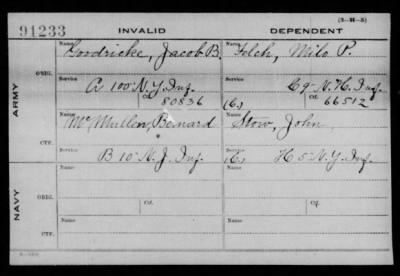 (3-M-5)
91233 INVALID DEPENDENT
ARMY
NAVY
ORIG.
Name Fordricke, Jacob B.
Name Felch, Milo P.
Service A 100 N.Y. Inf.
Service C 9 N.H. Inf.
Ctf. 80836
(C.) Ctf. 66512
CTF.
Name McMullen, Bernard
Name Stow, John
Service B 10 N.J. Inf.
Service (C.) H 5 N.Y. Inf.
ORIG.
Name
Name
Service
Ctf.
Service
Ctf.
CTF.
Name
Name